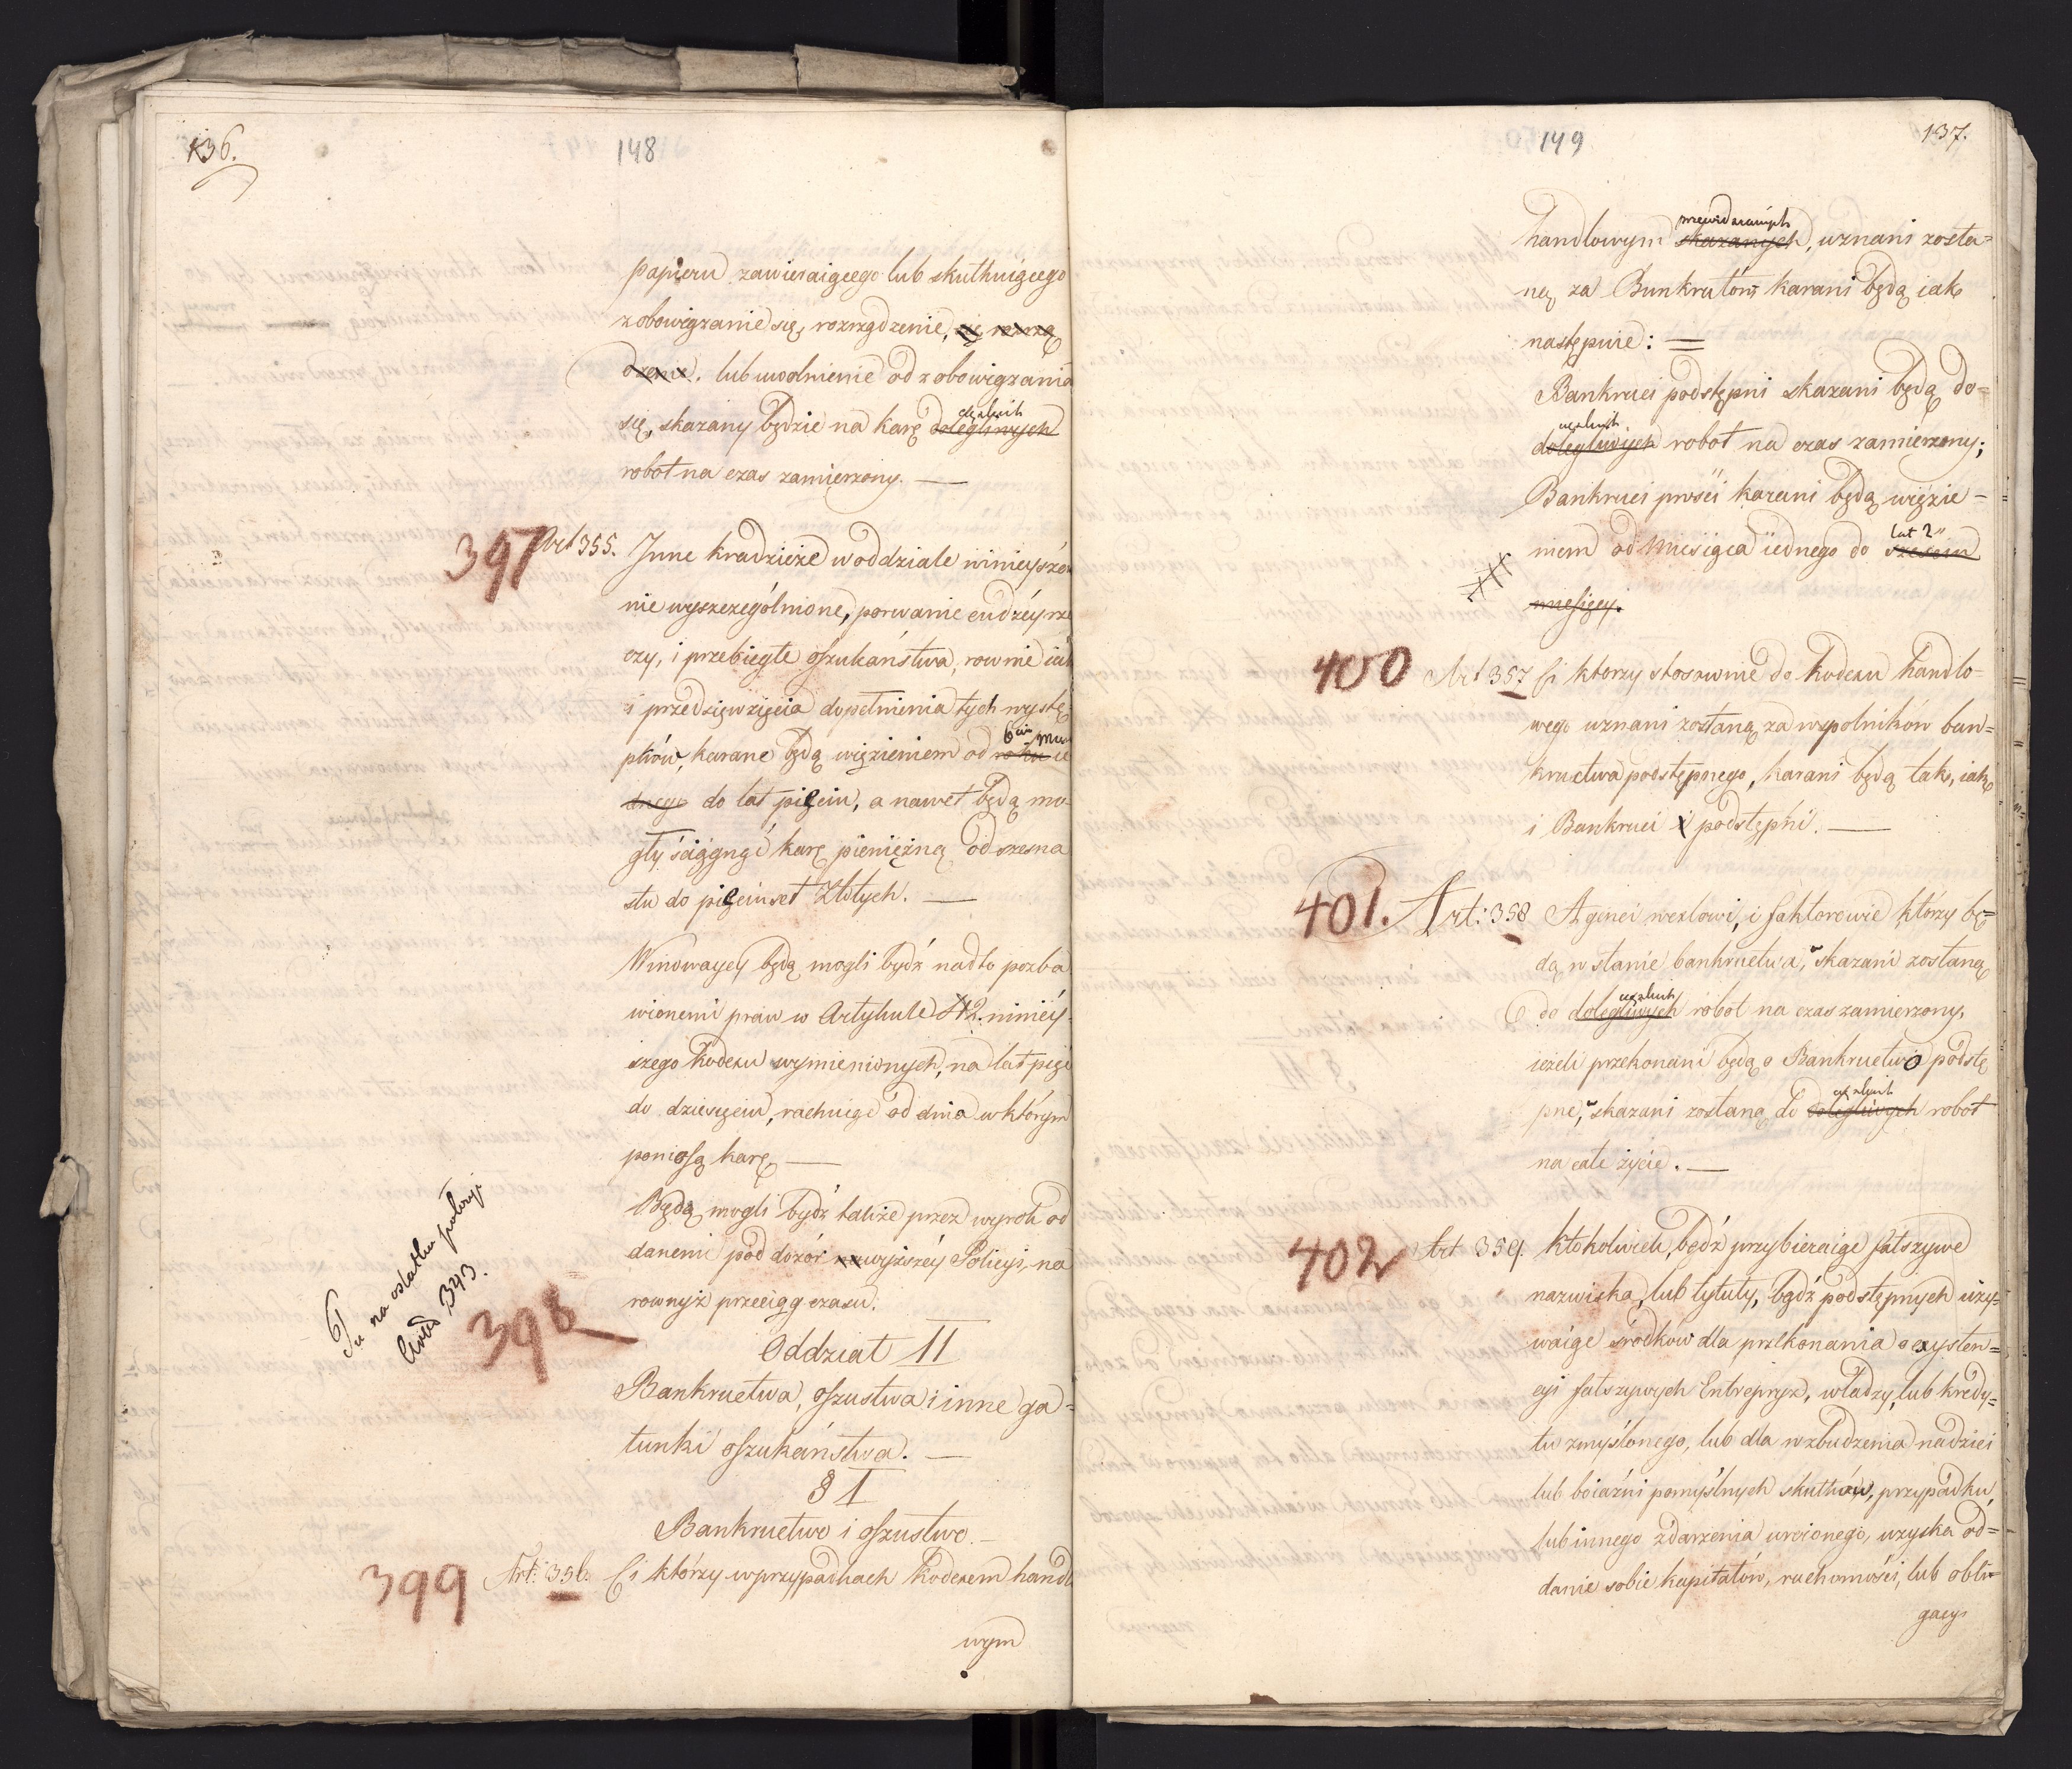 136.
148
papieru zawieraiącego lub skutkuiącego
zobowiązanie się, rozrządzenie, się rozrzą
dzenie. lub uwolnienie od zobowiązania
ciężkich
się, skazany będzie na karę dolegliwych
robot na czas zamierzony. —
397 Art 355. Inne kradzieże w oddziale ninieyszém
nie wyszczególnione, porwanie cudzéy rze
czy, i przebiegłe oszukaństwa, rownie iak
i przedsięwzięcia dopełnienia tych wystę
6ciu
pków, karane będą więzieniem od roku ie
dnego do lat pięciu, a nawet będą mo-
gły ściągnąć karę pieniężną od szesna
stu do pięciuset Złotych. —
Winowaycy będą mogli bydź nadto pozba
wionemi praw w Artykule 42. niniéy-
szego kodexu wymienionych, na lat pięć
do dziesięciu, rachuiąc od dnia w którym
poniosą karę —
Będą mogli bydź także przez wyrok od
danemi pod dozór wyższéy Policyi, na
rownyż przeciąg czasu.
Tu na ostatku położyć
Art. 343.
398
Oddział II
Bankructwa, oszustwa i inne ga=
tunki oszukaństwa. —
§ I
Bankructwo i oszustwo. —
399 Art: 356. Ci którzy w przypadkach kodexem handlo
wym
149
137.
przewidzianych
handlowym skazanych, uznani zosta=
ną za Bankrutów karani będą iak
następuie: =
Bankruci podstępni skazani będą do=
ciężkich
dolegliwych robot na czas zamierzony;
Bankruci prości karani będą więzie-
lat 2
niem od miesiąca iednego do sześciu
miesięcy.
400 Art 357 Ci ktorzy stosownie do kodexu handlo-
wego uznani zostaną za wspolników ban=
kructwa podstępnego, karani będą tak, iak
i Bankruci i podstępni. —
401. Art: 358 Agenci wexlowi, i faktorowie którzy bę=
dą w stanie bankructwa, skazani zostaną
ciężkich
do dolegliwych robot na czas zamierzony,
ieżeli przekonani będą o Bankructwo podstę
ciężkich
pne, skazani zostaną do dolegliwych robot
na całe życie. —
402 Art 359. Ktokolwiek, bądź przybieraiąc fałszywe
nazwiska, lub tytuły, bądź podstępnych uży=
waiąc srodkow dla przekonania o exysten=
cyi fałszywych Entrepryz, władzy, lub kredy=
tu zmyślonego, lub dla wzbudzenia nadziei
lub boiaźni pomyślnych skutków, przypadku,
lub innego zdarzenia uroionego, uzyska od=
danie sobie kapitałów, ruchomości, lub obli=
gacyi